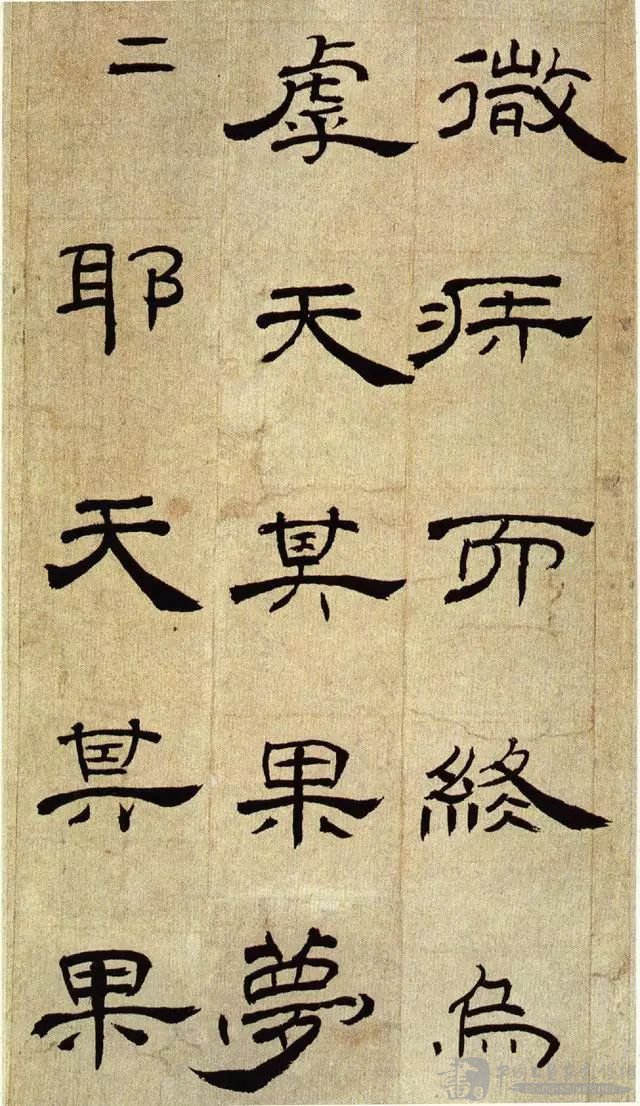 微疾而終烏
虖天其果夢
二耶天其果